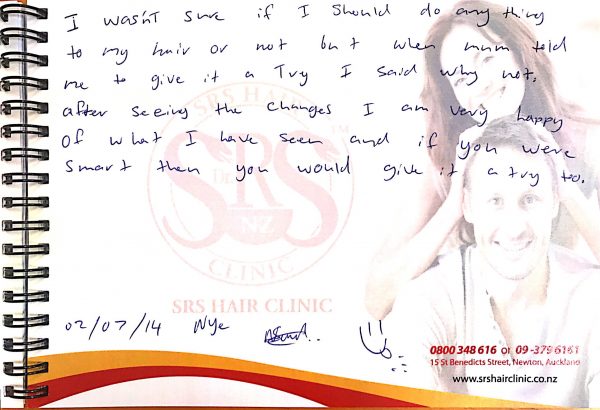 I wasn't sure if I should do any thing
to my hair or not but when mum told
me to give it a Try I said why not.
after seeing the changes I am very happy
of what I have seen and if you were
smart then you would give it a try too.
SRS HAIR
SRS
NZ
CLINIC
TM
SRS HAIR CLINIC
02/07/14 Nye
0800 348 616 or 09-379 6161
15 St Benedicts Street, Newton, Auckland
www.srshairclinic.co.nz